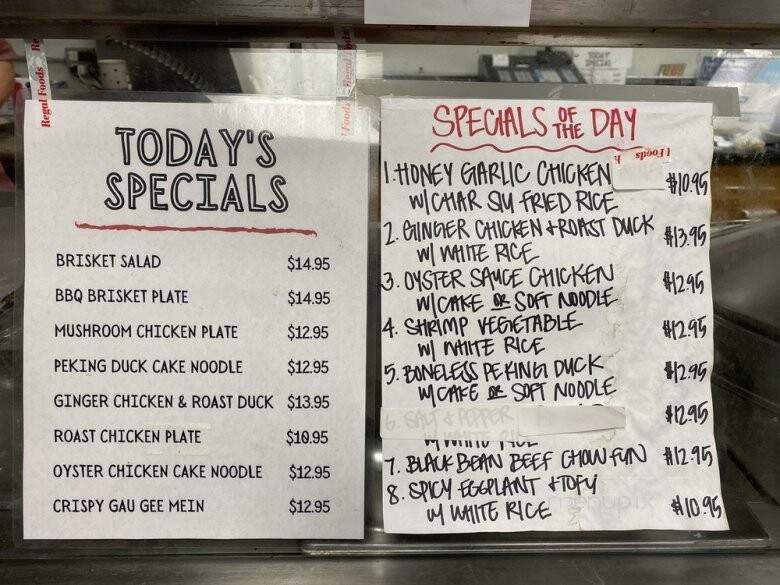 Regal Foods
Foods Regal Foods
TODAY'S
SPECIALS
BRISKET SALAD $14.95
BBQ BRISKET PLATE $14.95
MUSHROOM CHICKEN PLATE $12.95
PEKING DUCK CAKE NOODLE $12.95
GINGER CHICKEN & ROAST DUCK $13.95
ROAST CHICKEN PLATE $10.95
OYSTER CHICKEN CAKE NOODLE $12.95
CRISPY GAU GEE MEIN $12.95
SPECIALS OF THE DAY
Foods
1. HONEY GARLIC CHICKEN $10.95
W/ CHAR SIU FRIED RICE
2. GINGER CHICKEN + ROAST DUCK $13.95
W/ WHITE RICE
3. OYSTER SAUCE CHICKEN $12.95
W/ CAKE OR SOFT NOODLE
4. SHRIMP VEGETABLE $12.95
W/ WHITE RICE
5. BONELESS PEKING DUCK $12.95
W/ CAKE OR SOFT NOODLE
6. SALT & PEPPER $12.95
W/ WHITE RICE
7. BLACK BEAN BEEF CHOW FUN $12.95
8. SPICY EGGPLANT + TOFU
W/ WHITE RICE $10.95